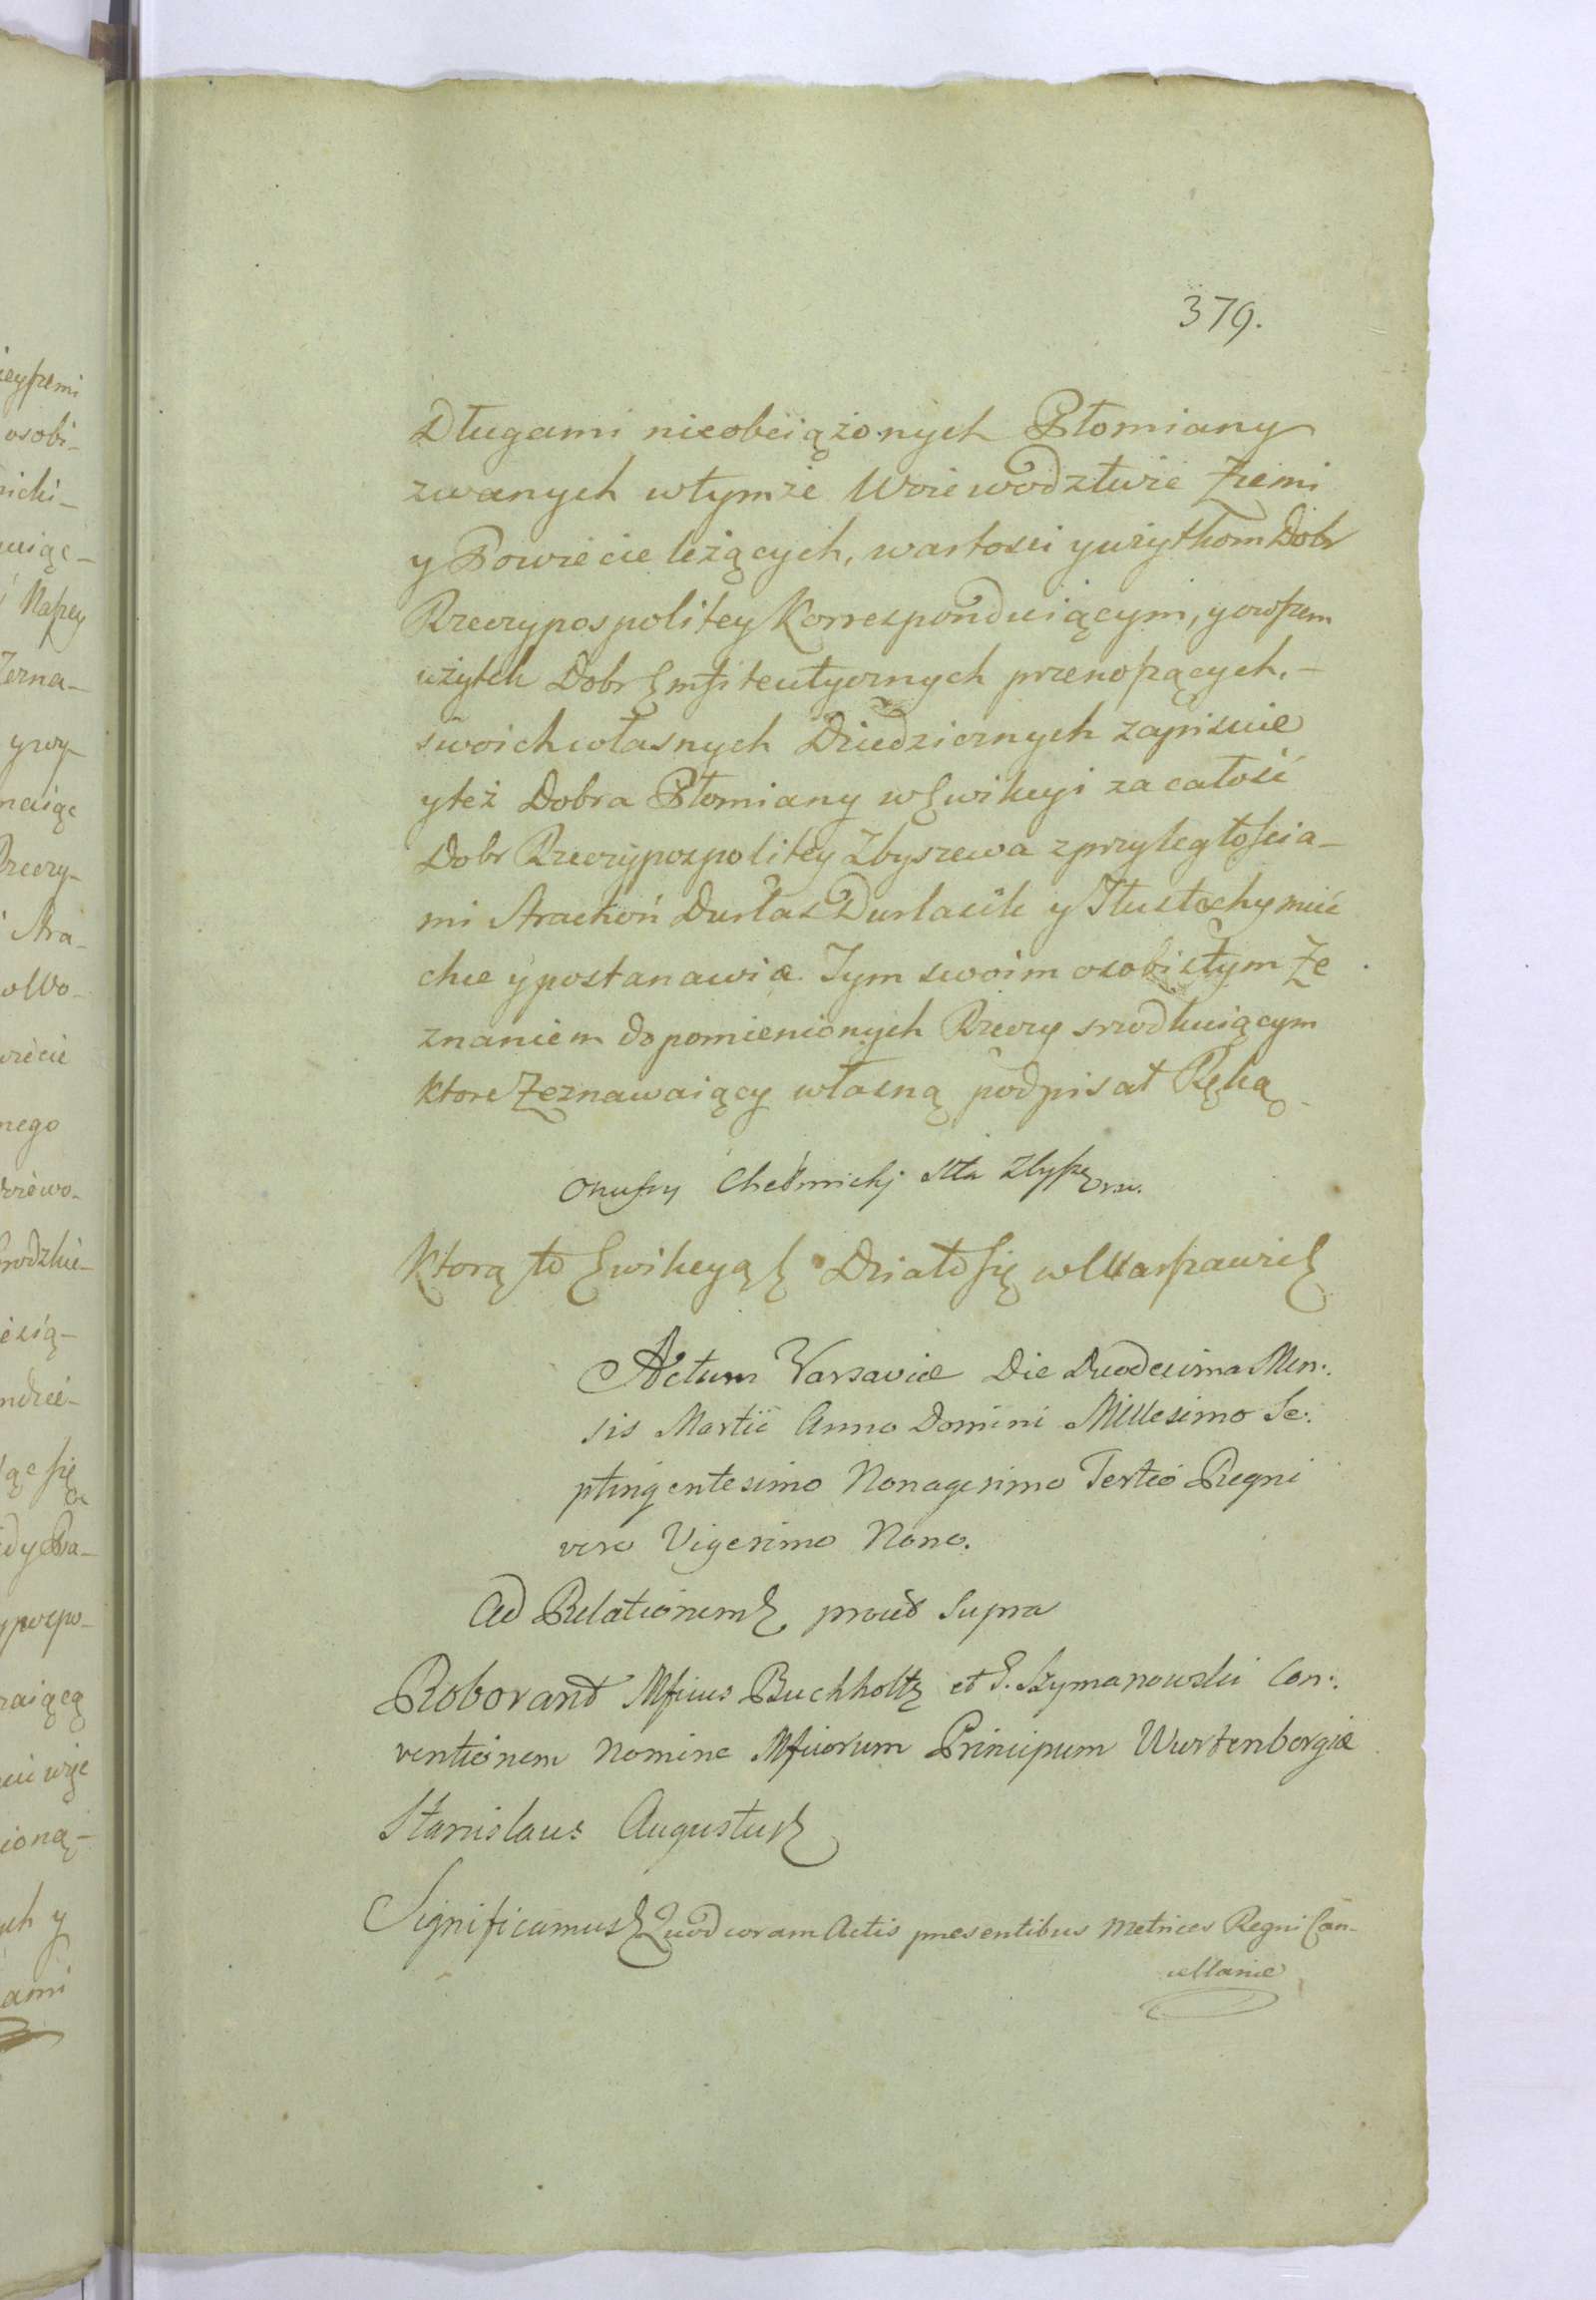 379.
Długami nieobciążonych Płomiany
zwanych w tymże Woiewodztwie Ziemi
y Powiecie leżących, wartosci y użytkom Dobr
Rzeczypospolitey Korresponduiącym, y owszem
użytek Dobr Emfiteutycznych przenoszących. –
swoich własnych Dziedzicznych zapisuie
y też Dobra Płomiany w Ewikcyi za całość
Dobr Rzeczypospolitey Zbyszewa z przyległościa-
mi Strackoń Durlas Durlasik y Tłustochy mieć
chce y postanawia. Tym swoim osobistym Ze
znaniem do pomienionych Rzeczy srzodkuiącym
ktore Zeznawaiący własną podpisał Ręką
Onufry Chełmicki Stta Zbysze
Ktorą to Ewikcyą Działo się w Warszawie
Actum Varsaviae Die Duodecima Men:
sis Martii Anno Domini Millesimo Se:
ptingentesimo Nonagesimo Tertio Regni
vero Vigesimo Nono.
Ad Relationem prout Supra
Roborant Mficus Buchholtz et G. Szymanowski Con:
ventionem Nomine Mficorum Principum Wurtenbergiae
Stanislaus Augustus
Significamus Quod coram Actis praesentibus Metrices Regni Can-
cellariae
ieyszemi
osobi-
nicki-
uiąc-
Naszey
Zezna-
y wy-
naiąc
Rzeczy-
Stra-
o Wo-
wiecie
nego
Woiewo-
Grodzkie-